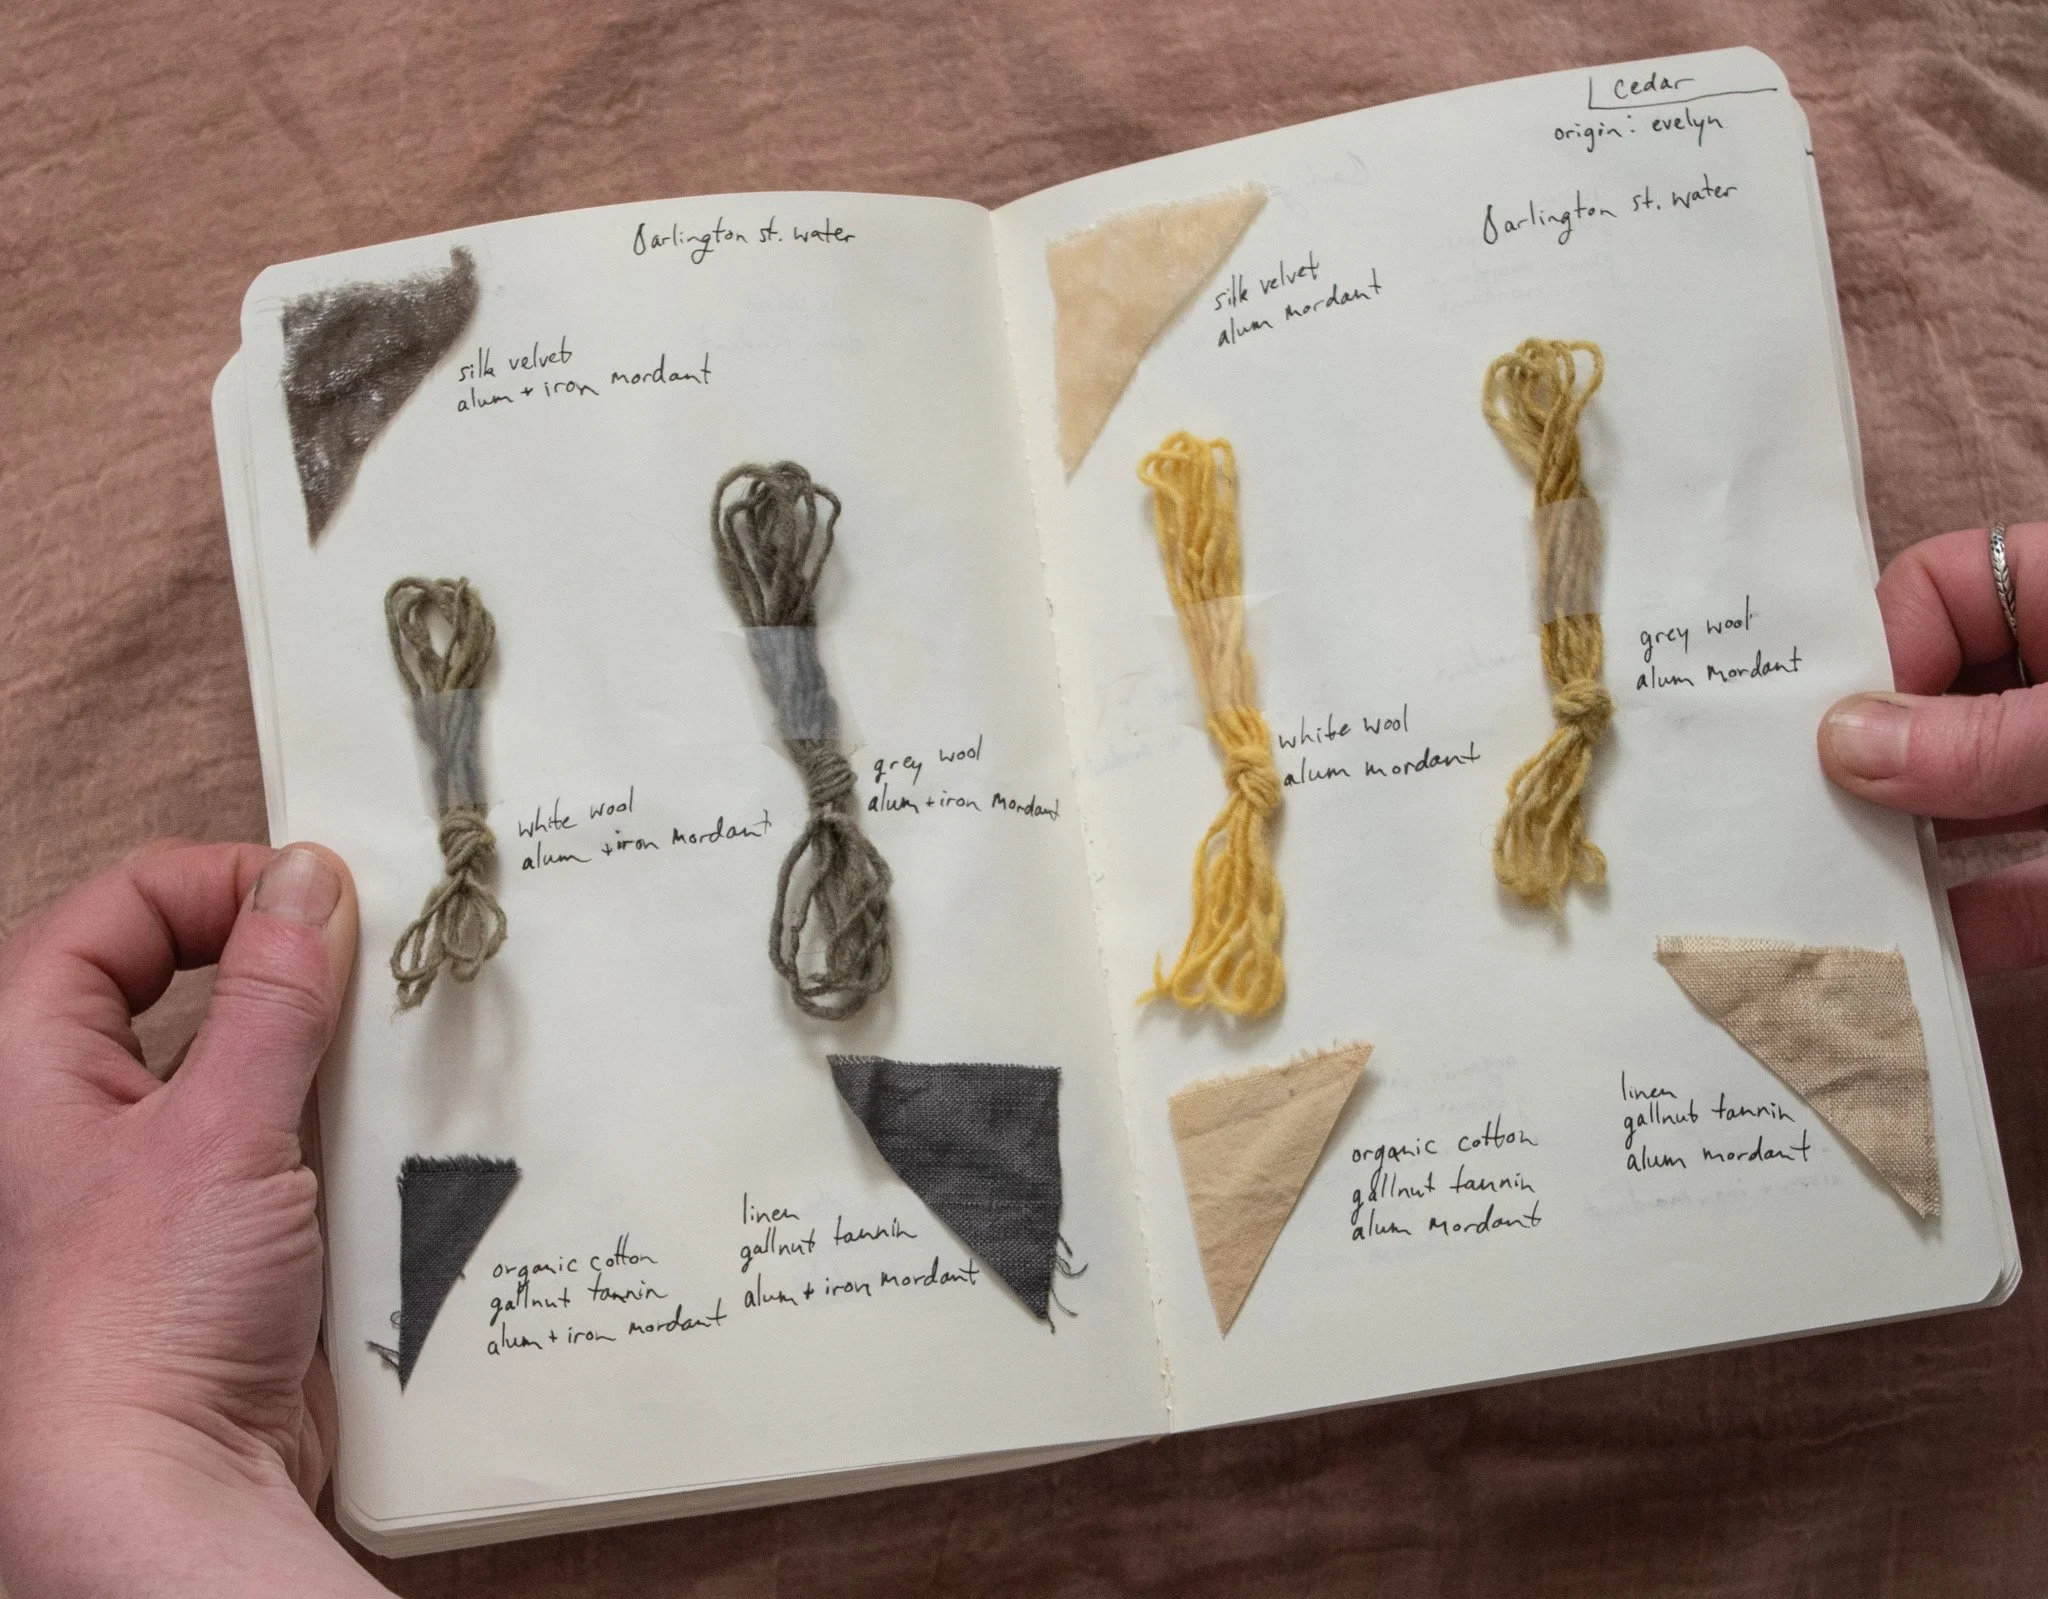 Darlington st. water
silk velvet
alum + iron mordant
grey wool
alum + iron mordant
white wool
alum + iron mordant
linen
gallnut tannin
alum + iron mordant
organic cotton
gallnut tannin
alum + iron mordant
cedar
origin: evelyn
Darlington st. water
silk velvet
alum mordant
grey wool
alum mordant
white wool
alum mordant
linen
gallnut tannin
alum mordant
organic cotton
gallnut tannin
alum mordant